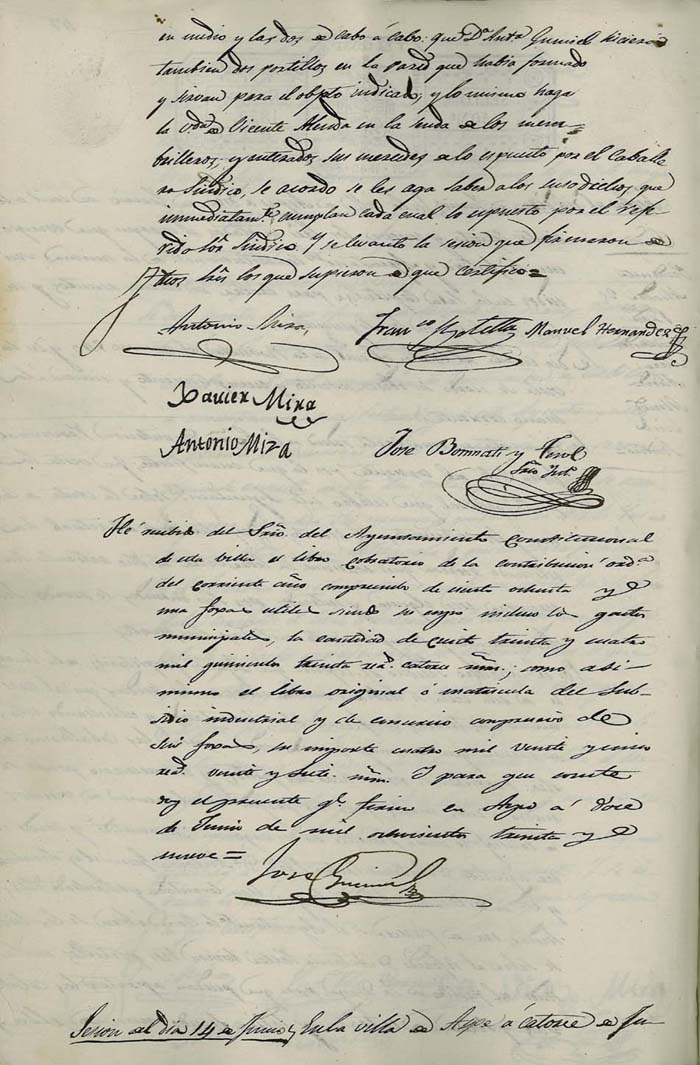 en medio y las dos de cabo á cabo: que Dª Antª Gumiel hiciera
tambien dos portillos en la pared que habia formado
y sirvan para el objeto indicado; y lo mismo haga
la vdª de Vicente en la senda de los mem-
brilleros, y enterados sus mercedes de lo espuesto por el Caballe
ro Sindico, se acordó se les aga saber a los susodichos que
inmediatamte cumplan cada cual lo espuesto por el refe-
rido Sor Sindico. Y se levanto la sesion que firmaron de
dhos Sres los que supieron de que certifico=
Antonio Mira,
Franco Botella
Manuel Hernandez
Xavier Mira
Antonio Miza
Jose Bonmati y
Srio
Hé recibido del Srio del Ayuntamiento Constitucional
de esta villa el libro cobratorio de la contribucion ordª
del corriente año comprensivo de ciento ochenta y
una foxas utiles siendo su cargo incluso los gastos
municipales, la cantidad de ciento treinta y cuatro
mil quinientos treinta rs. catorce mrs.; como asi-
mismo el libro original ó matricula del Sub-
sidio industrial y de comercio compresivo de
seis foxas, su importe cuatro mil veinte y cinco
rs. veinte y siete mrs. Y para que conste
doy el presente qe firmo en Aspe á doce
de Junio de mil ochocientos treinta y
nueve=
Jose
Sesion del dia 14 de Junio, En la villa de Aspe á catorce de Ju-